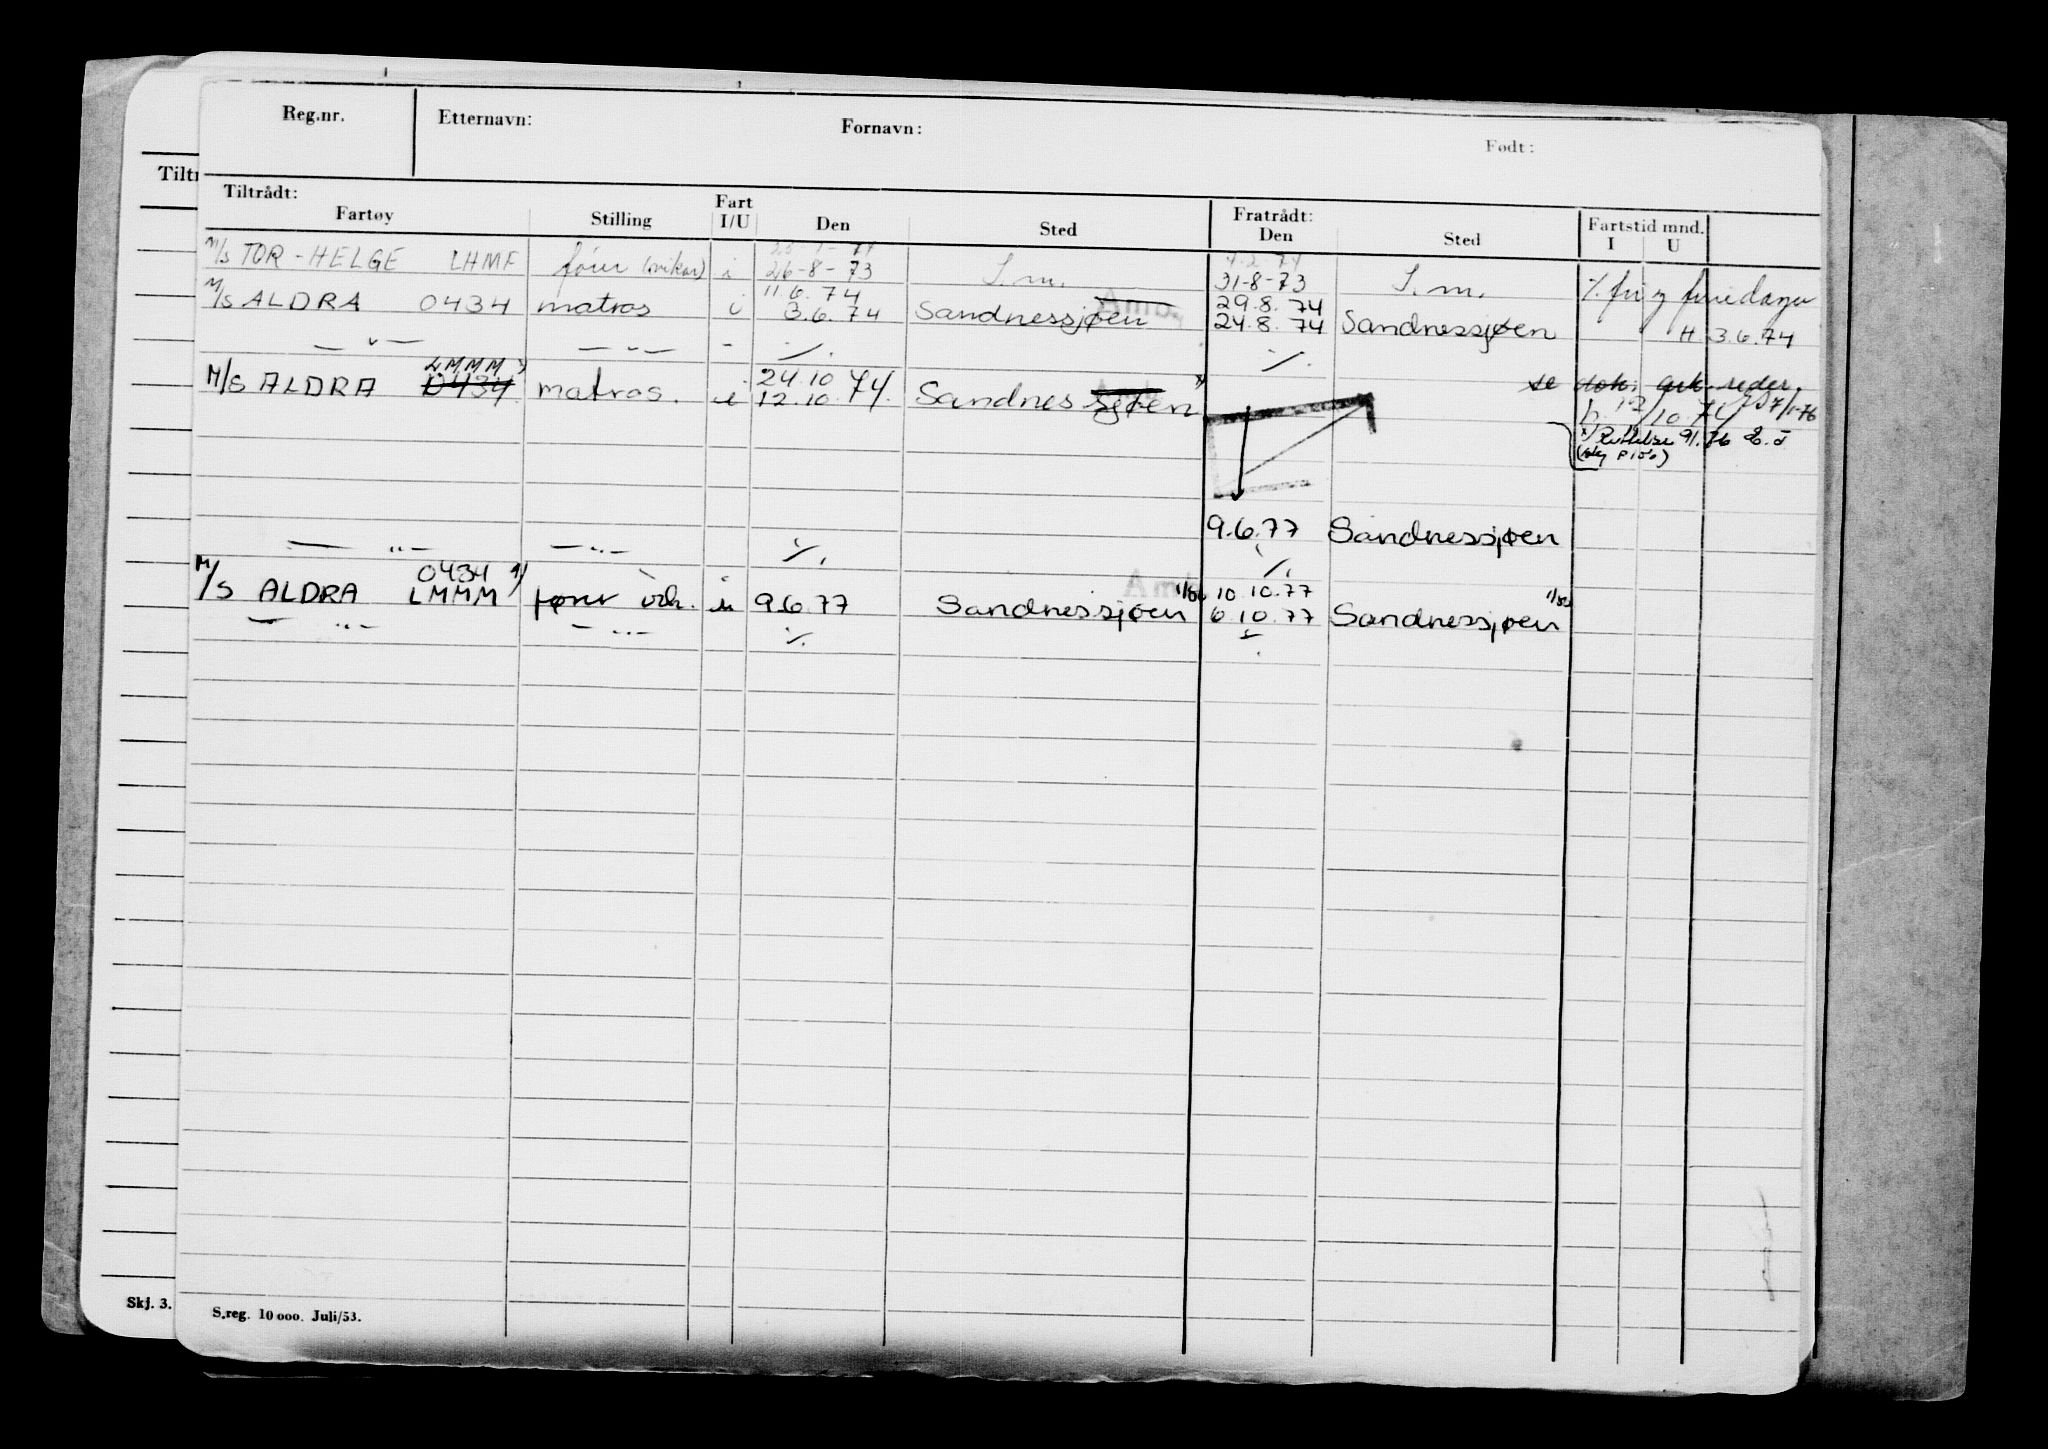 Reg.nr. Etternavn: Fornavn: Født:
Tiltr
Tiltrådt: Fratrådt: Fartstid mnd.
Fartøy Stilling Fart I/U Den Sted Den Sted I U
M/S TOR-HELGE LHMF fører (vikar) i 26-8-73 S.m. 31-8-73 S.m.
11.6.74 29.8.74
M/S ALDRA 0434 matros i 3.6.74 Sandnessjøen 24.8.74 Sandnessjøen H. 3.6.74
— " — — " — - ./. ./.
LMMM x) 24.10 se dok. ark. reder.
M/S ALDRA 0434 matros. i 12.10.74. Sandnessjøen x)
h. 12/10.74
x) Rettelse
9.6.77 Sandnessjøen
— " — — " — ./. ./.
0434 10.10.77
M/S ALDRA LMMM fører i 9.6.77 Sandnessjøen 6.10.77 Sandnessjøen
— " — — " — ./. ./.
Skj. 3.
S.reg. 10 000. Juli/53.